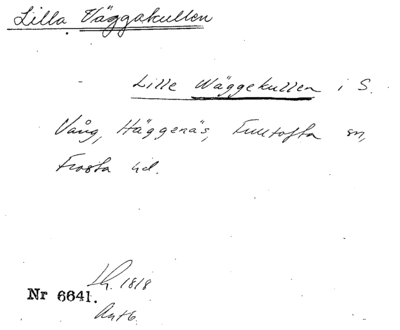 Lilla Väggakullen
Lille Wäggekullen i S.
Vång, Häggenäs, Fulltofta sn,
Frosta hd.
Lh. 1818
Nr 6641.